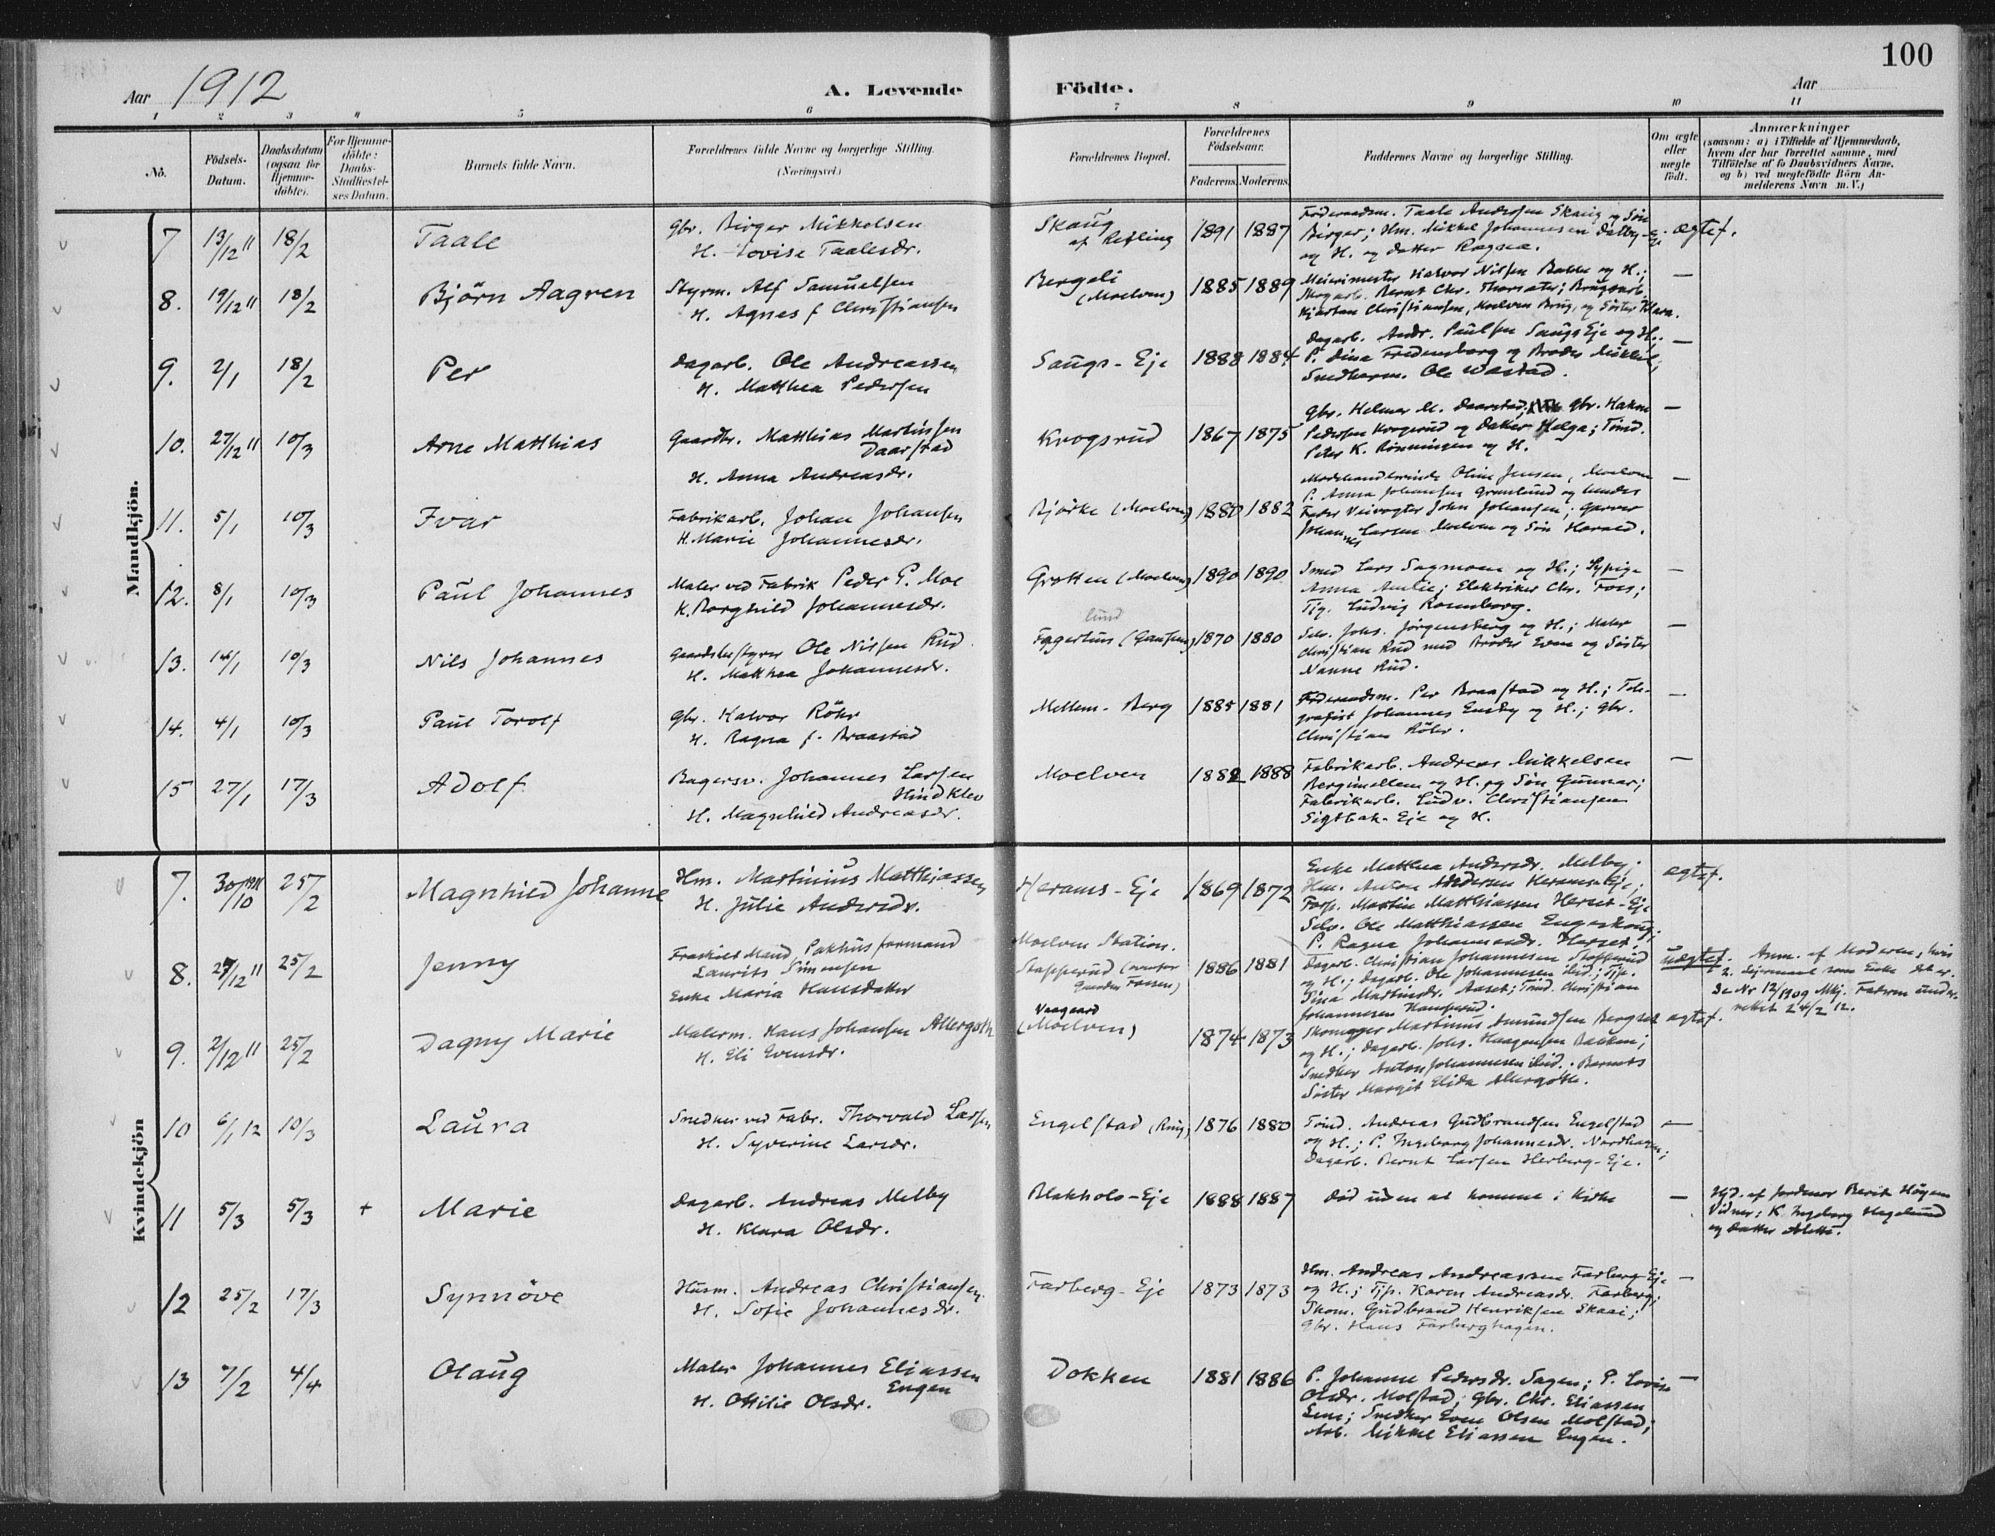 100
Aar 1912
A. Levende Födte.
Aar
1 2 3 4 5 6 7 8 9 10 11
No.
Födsels-Datum.
Daabsdatum (ogsaa for Hjemme-döbte).
For Hjemme-döbte: Daabs-Stadfæstel-ses Datum.
Barnets fulde Navn.
Forældrenes fulde Navne og borgerlige Stilling.
(Næringsvei.)
Forældrenes Bopæl.
Forældrenes Födselsaar.
Faderens. Moderens.
Faddernes Navne og borgerlige Stilling.
Om ægte eller uægte födt.
Anmærkninger
(saasom: a) i Tilfælde af Hjemmedaab,
hvem der har forrettet samme, med
Tilföielse af to Daabsvidners Navne,
og b) ved uægtefödte Börn An-
melderens Navn m. V.)
Mandkjön.
7 13/12 11 18/2 Taale
Gbr. Birger Mikkelsen
H. Lovise Taalesdr.
Skaug
af Refling
1891 1887
Föderaadsm. Taale Andersen Skaug og Sön
Birger; Hm. Mikkel Johannesen Dalby-Eje
og H. og Datter Ragna.
ægtef.
8. 19/12 11 18/2 Björn Aagren
Styrm. Alf Samuelsen
H. Agnes f. Christiansen
Bergeli
(Moelven)
1885 1889
Meierimester Halvor Nilsen Bakke og H.;
Skogarb. Bernt Chr. Thorsæter; Brugsarb.
Kjartan Christiansen, Moelven Brug, og Söster Klara.
—
9. 2/1 18/2 Per
Dagarb. Ole Andreassen
H. Matthea Pedersen
Saugs-Eje
1888 1884
Dagarb. Andr. Paulsen Saugs Eje og H.;
P. Dina Fredensborg og Broder Mikkel;
Snedkerm. Ole Wastad.
—
10. 27/12 11 10/3 Arne Matthias
Gaardbr. Matthias Martinsen
Daarstad
H. Anna Andreasdr.
Krogsrud
1867 1875
Gbr. Helmer M. Daarstad, Gbr. Hakon
Pedersen Krogsrud og Datter Helga; Tömd.
Peter K. Rönningen og H.
—
11. 5/1 10/3 Ivar
Fabrikarb. Johan Johansen
H. Marie Johannesdr.
Bjørke (Moelven)
1880 1882
Modehandlerinde Oline Jensen, Moelven
P. Anna Johansen Grønlund og hendes
Fader Veivogter John Johansen; Garver
Johannes Larsen Moelven og Sön Harald.
—
12. 8/1 10/3 Paul Johannes
Maler ved Fabrik Peder P. Moe
H. Borghild Johannesdr.
Grotten (Moelven)
1890 1890
Smed Lars Sagmoen og H.; Sypige
Anna Amlie; Elektriker Chr. Foss;
Tjg. Ludvig Ronneborg.
—
13. 14/1 10/3 Nils Johannes
Gaardsbestyrer Ole Nilsen Rud
H. Matthea Johannesdr.
lund
Fagerhus (Gaupen)
1870 1880
Selv. Johs. Jörgensberg og H.; Maler
Christian Rud med Broder Even og Söster
Nanne Rud.
—
14. 4/1 10/3 Paul Torolf
Gbr. Halvor Röhr
H. Ragna f. Braastad
Mellem-Berg
1885 1881
Föderaadsm. Per Braastad og H.; Tele-
grafist Johannes Enseby og H.; Gbr.
Christian Röhr.
—
15 27/1 17/3 Adolf
Bagersv. Johannes Larsen
Hindklev
H. Magnhild Andreasdr.
Moelven
1882 1888
Fabrikarb. Andreas Mikkelsen
Bergimellem og H. og Sön Gunnar;
Fabrikarb. Ludv. Christiansen
Sigtbak-Eje og H.
—
Kvindekjön
7. 30/10 11 25/2 Magnhild Johanne
Hm. Martinius Matthiassen
H. Julie Andersdr.
Herams-Eje
1869 1872
Enke Matthea Andersdr. Melby;
Hm. Anton Andersen Herams-Eje;
Forp. Martin Matthiassen Herset-Eje
Selv. Ole Matthiassen Engeskaug;
P. Ragna Johannesdr. Herset.
ægtef.
8. 27/12 11 25/2 Jenny
Fraskilt Mand, Pakhusformand
Laurits Simensen
Enke Maria Hansdatter
Moelven Station.
Stapperud (ovenfor
Gaarden Fossen)
1886 1881
Dagarb. Christian Johannesen Stapperud
og H.; Dagarb. Ole Johannesen ibid.; Tjp.
Dina Martinsdr. Aaset; Tömd. Christian
Johannesen Kamperud.
uægtef.
Anm. af Moderen, hvis
2. Leiermaal som Enke det er.
Se Nr 12/1909 Mkj. Fadren under-
rettet 24/2 12.
9. 2/12 11 25/2 Dagny Marie
Malerm. Hans Johansen Allergoth
H. Eli Evensdr.
Vaagaard
(Moelven)
1874 1873
Skomager Martinus Amundsen Bergset
og H.; Dagarb. Johs. Haagensen Bakken;
Snedker Anton Johannesen ibid.; Barnets
Söster Margit Elida Allergoth.
ægtef.
10 6/1 12 10/3 Laura
Snedker ved Fabr. Thorvald Larsen
H. Syverine Larsdr.
Engelstad (Ring)
1876 1880
Tömd. Andreas Gudbrandsen Engelstad
og H.; P. Ingeborg Johannesdr. Nordhagen;
Dagarb. Bernt Larsen Herberg-Eje.
—
11 5/3 5/3 + Marie
Dagarb. Andreas Melby
H. Klara Olsdr.
Blakhols-Eje
1888 1887
Död uden at komme i Kirke
—
Hjd. af Jordmor Berit Høgen
Vidner: K. Ingeborg Hegelund
og Datter Alette.
12 25/2 17/3 Synnöve
Husm. Andreas Christiansen
H. Sofie Johannesdr.
Farberg-Eje
1873 1873
Hm. Andreas Andreassen Farberg-Eje
og H.; Tjp. Karen Andreasdr. Farberg;
Skom. Gudbrand Henriksen Skaai;
Gbr. Hans Farberghagen.
—
13 7/2 4/4 Olaug
Maler Johannes Eliassen
Engen
H. Ottilie Olsdr.
Dokken
1881 1886
P. Johanne Pedersdr. Sagen; P. Lovise
Olsdr. Molstad; Gbr. Chr. Eliassen
Lene; Snedker Even Olsen Molstad;
Arb. Mikkel Eliassen Engen.
—